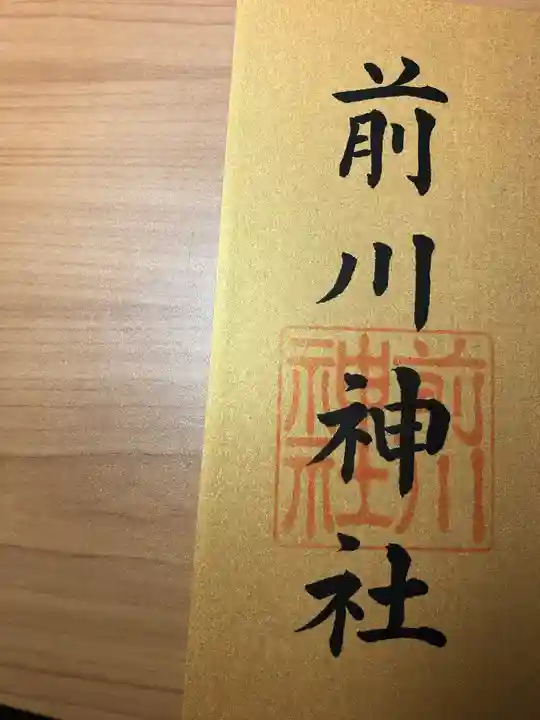 前川神社
前川
神社